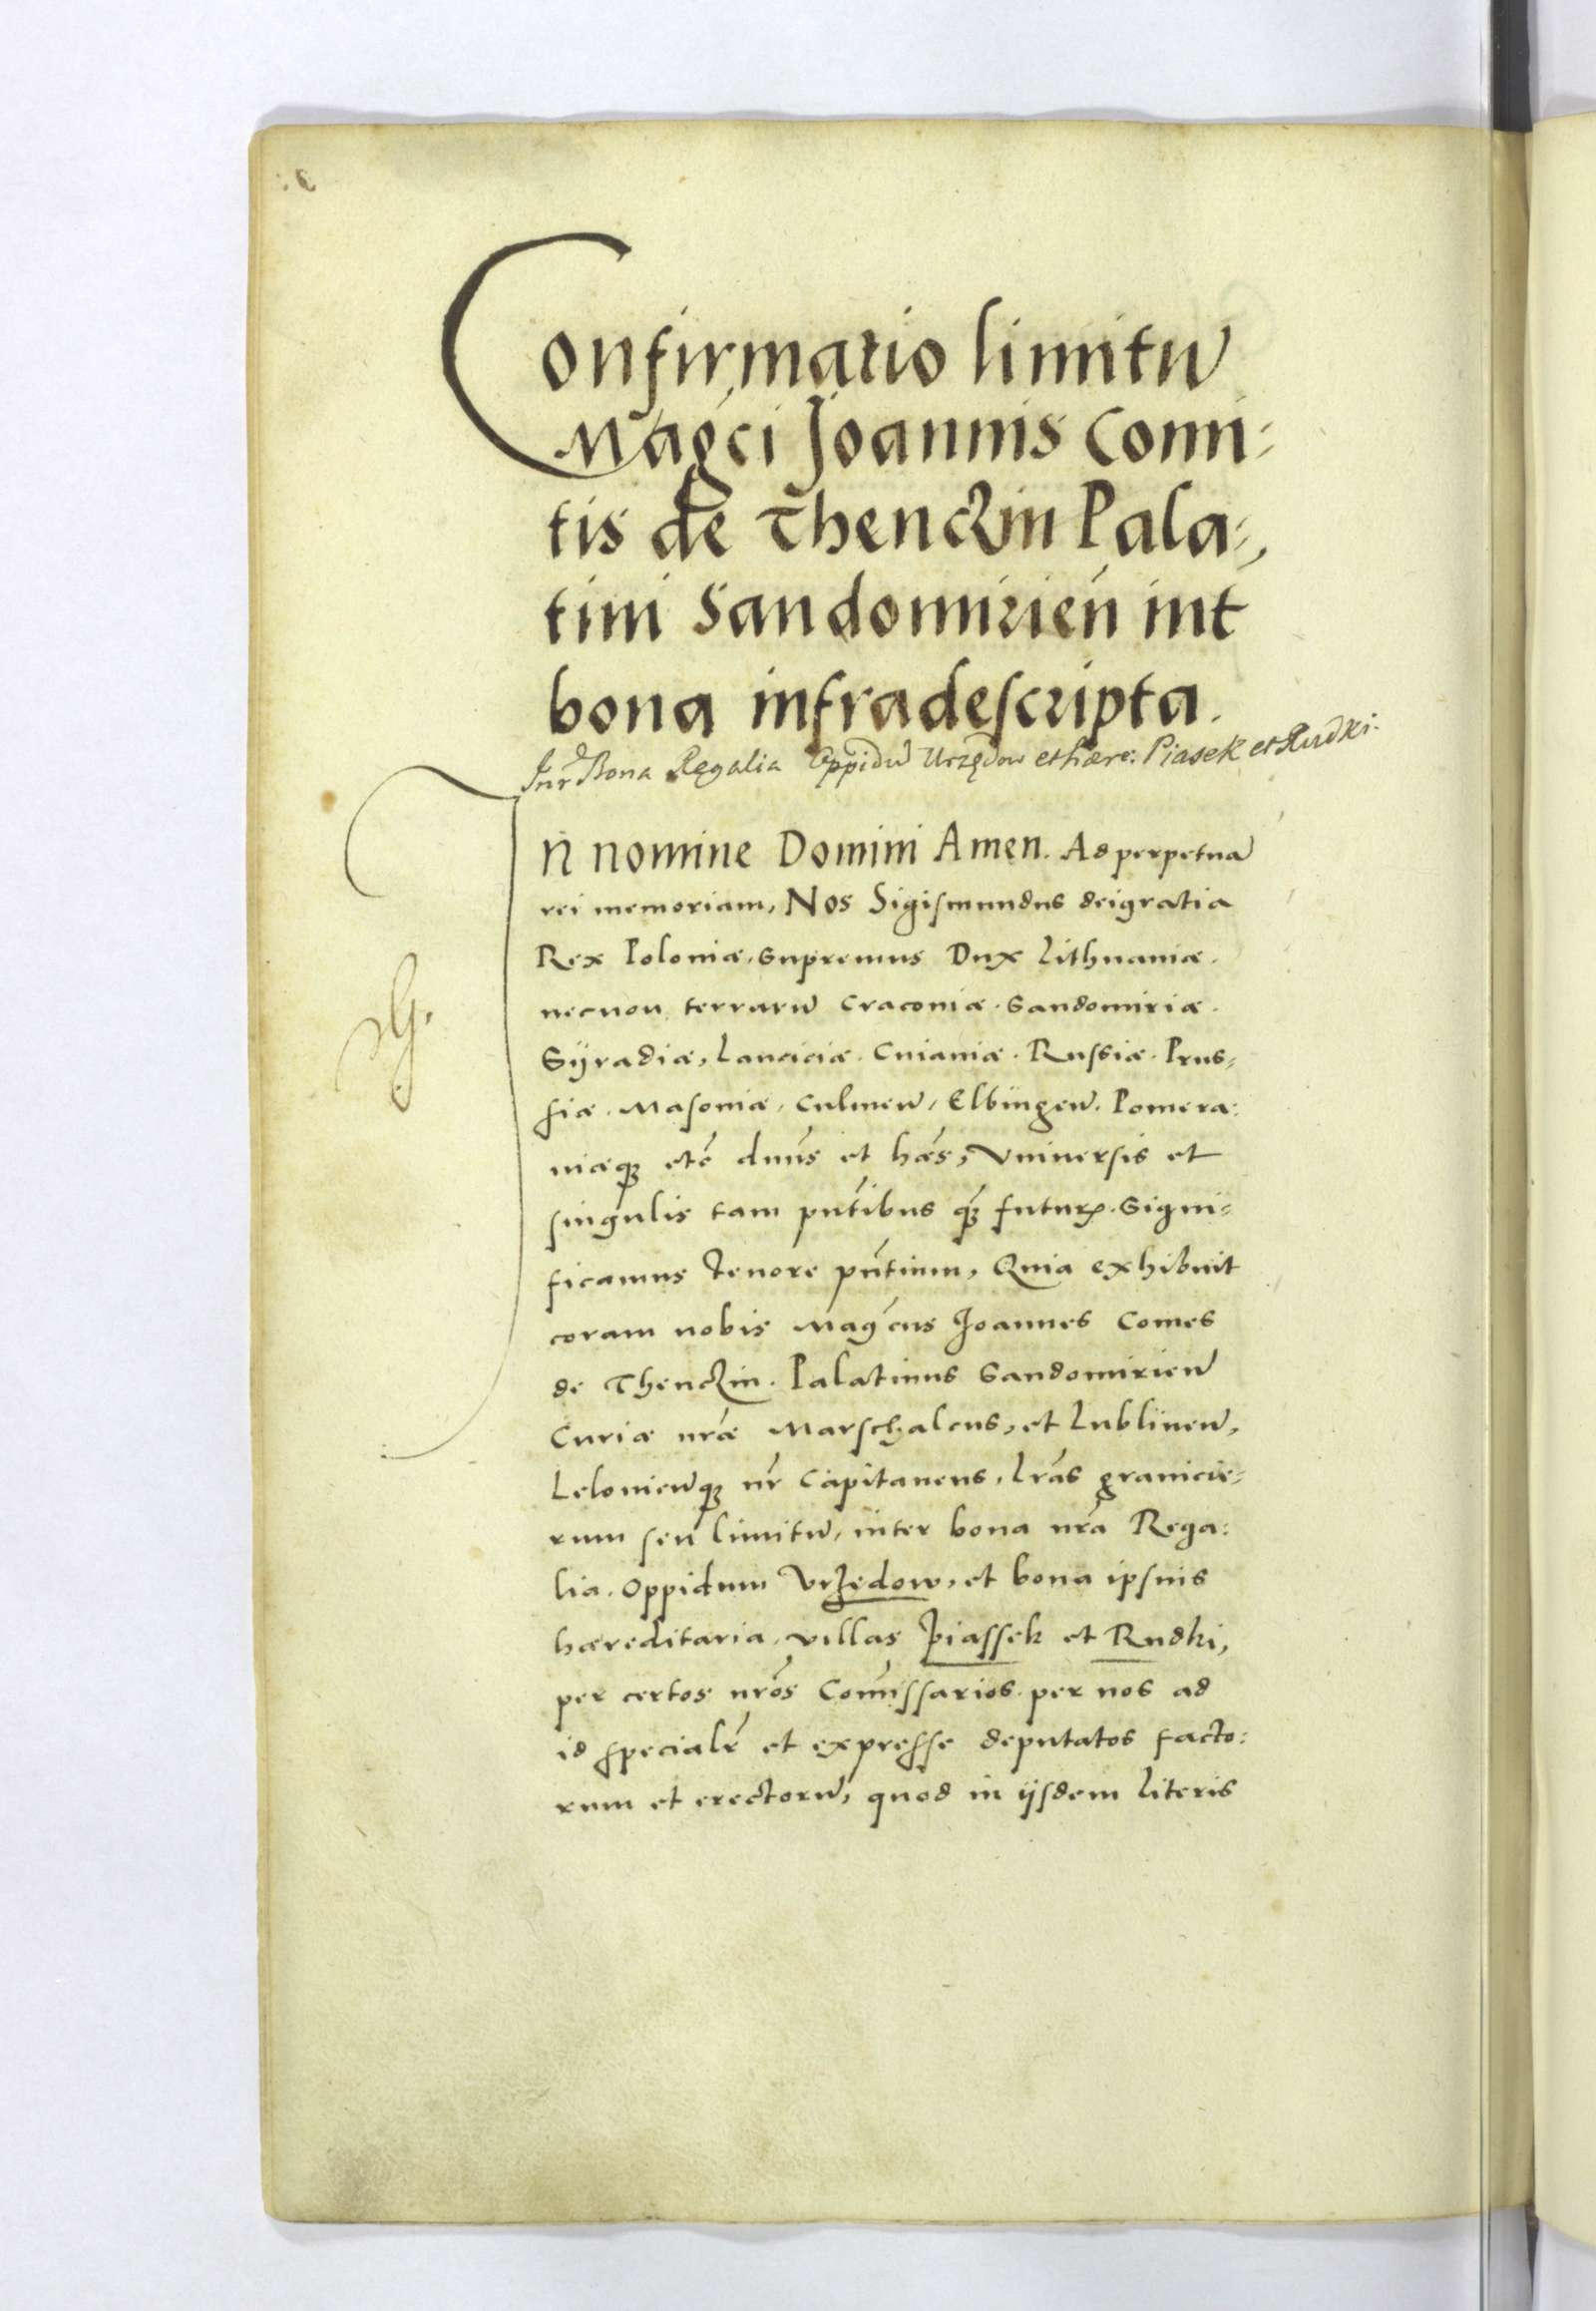 Confirmatio limitũ
Mag̃ci Joannis Comi=
tis de Thenczin Pala=
tini Sandomirieñ int
bona infradescripta.
Intr̃ Bona Regalia Oppidũ Urzędow et hære: Piasek et Rudki.
In nomine Domini Amen. Ad perpetuã
rei memoriam, Nos Sigismundus dei gratia
Rex Poloniæ, Supremus Dux Lithuaniæ.
necnon terrarũ Cracoviæ. Sandomiriæ.
Syradiæ, Lanciciæ. Cuiaviæ. Russiæ. Prus=
siæ. Masoviæ, Culmeñ, Elbingeñ. Pomera:
niæq; etc̃ dnũs et hæs̃, Universis et
singulis tam pñtibus q̃ futuris. Signi=
ficamus tenore pñtium, Quia exhibuit
coram nobis Mag̃cus Joannes Comes
de Thenczin. Palatinus Sandomirieñ
Curiæ nr̃æ Marschalcus, et Lublineñ,
Lelovieñq; nr̃ Capitaneus, Lr̃as granicie=
rum seu limitũ, inter bona nr̃a Rega:
lia. Oppidum Vrzedow, et bona ipsius
hæreditaria, villas Piassek et Rudki,
per certos nr̃os Com̃issarios per nos ad
id specialr̃ et expresse deputatos facto:
rum et erectorũ, quod in ijsdem literis